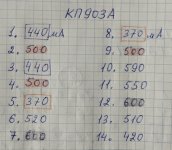 КПДОЗА
1. 440 мА
2. 500
3. 440
4. 500
5. 370
6. 520
7. 600
8. 370
9. 500
10. 590
11. 550
12. 600
13. 510
14. 420